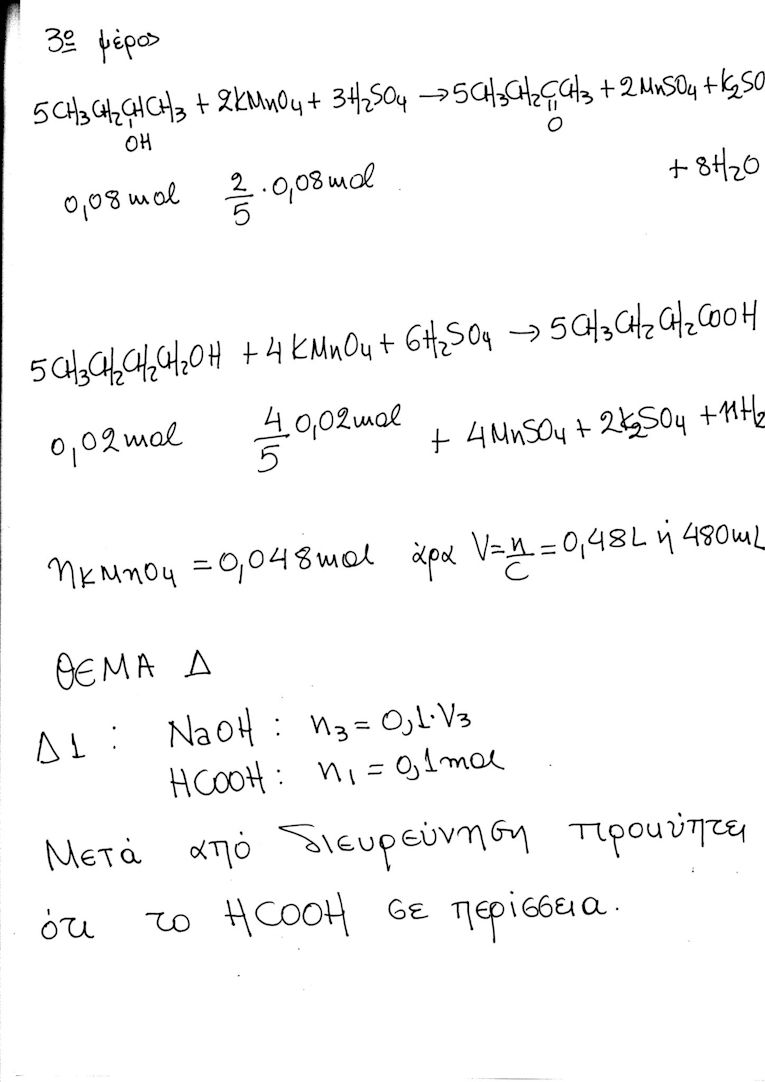 3º μέρος
5CH3CH2CHCH3 + 2KMnO4 + 3H2SO4 → 5CH3CH2CCH3 + 2MnSO4 + K2SO
OH O
0,08 mol 2/5 · 0,08 mol + 8H2O
5CH3CH2CH2CH2OH + 4KMnO4 + 6H2SO4 → 5CH3CH2CH2COOH
0,02 mol 4/5 · 0,02 mol + 4MnSO4 + 2K2SO4 + 11H2
nKMnO4 = 0,048 mol άρα V = n/C = 0,48 L ή 480 mL
ΘΕΜΑ Δ
Δ1 : NaOH : n3 = 0,1·V3
HCOOH : n1 = 0,1 mol
Μετά από διευρεύνηση προκύπτει
ότι το HCOOH σε περίσσεια.